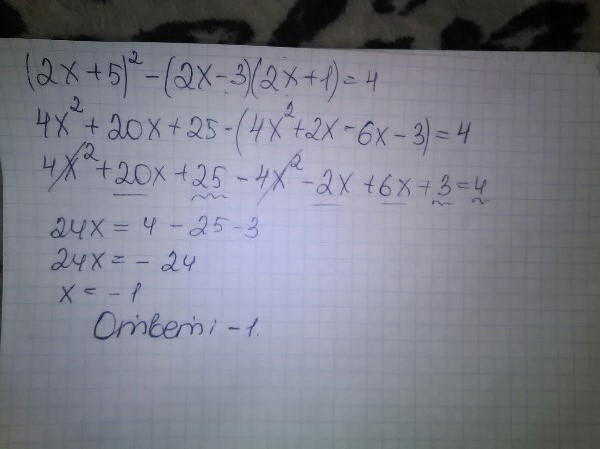 (2x+5)² - (2x-3)(2x+1) = 4
4x² + 20x + 25 - (4x² + 2x - 6x - 3) = 4
4x² + 20x + 25 - 4x² - 2x + 6x + 3 = 4
24x = 4 - 25 - 3
24x = - 24
x = - 1
Ответ: -1.